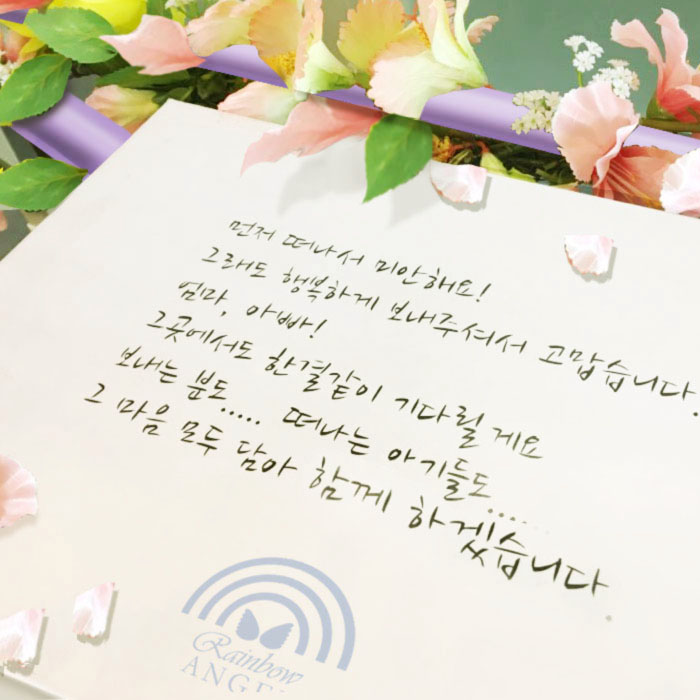 먼저 떠나서 미안해요!
그래도 행복하게 보내주셔서 고맙습니다.
엄마, 아빠!
그곳에서도 한결같이 기다릴 게요
보내는 분도..... 떠나는 아기들도.....
그 마음 모두 담아 함께 하겠습니다.
Rainbow
ANGEL